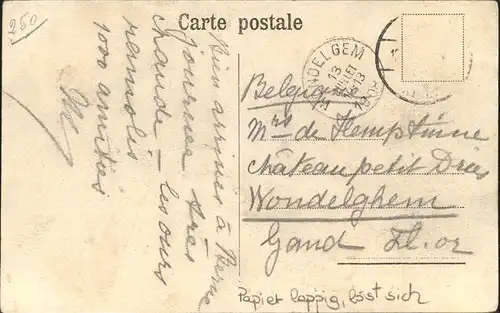 250
Carte postale
Bien arrivés à Berne
journée très
chaude – les ours
ramolis
1000 amitiés
WONDELGEM
13
JUILLET
13
1908
Belgique
Mrs de Hemptinne
Château petit Dries
Wondelghem
Gand Fl. or
Papier lappig, löst sich